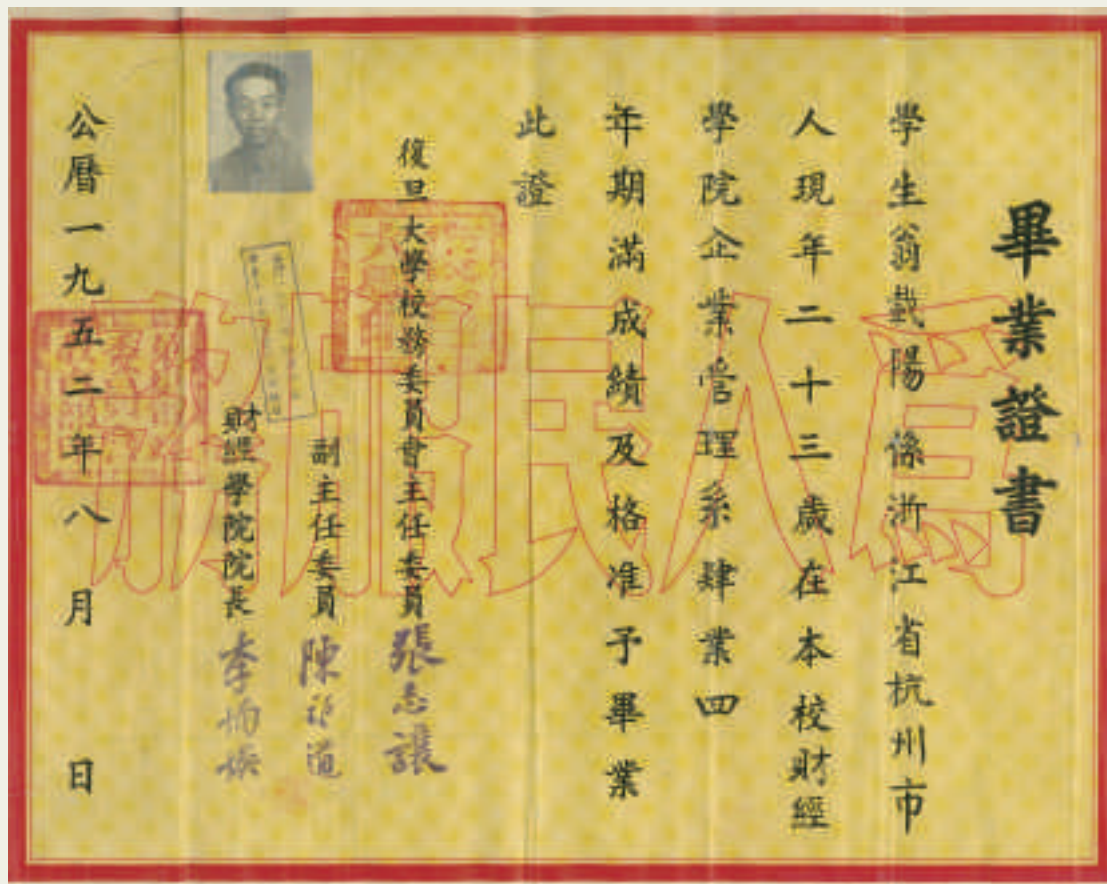 畢業證書
學生翁載陽係浙江省杭州市
人現年二十三歲在本校財經
學院企業管理系肄業四
年期滿成績及格准予畢業
此證
復旦大學校務委員會主任委員張志讓
副主任委員陳望道
財經學院院長李炳煥
公曆一九五二年八月 日
爲人民服務